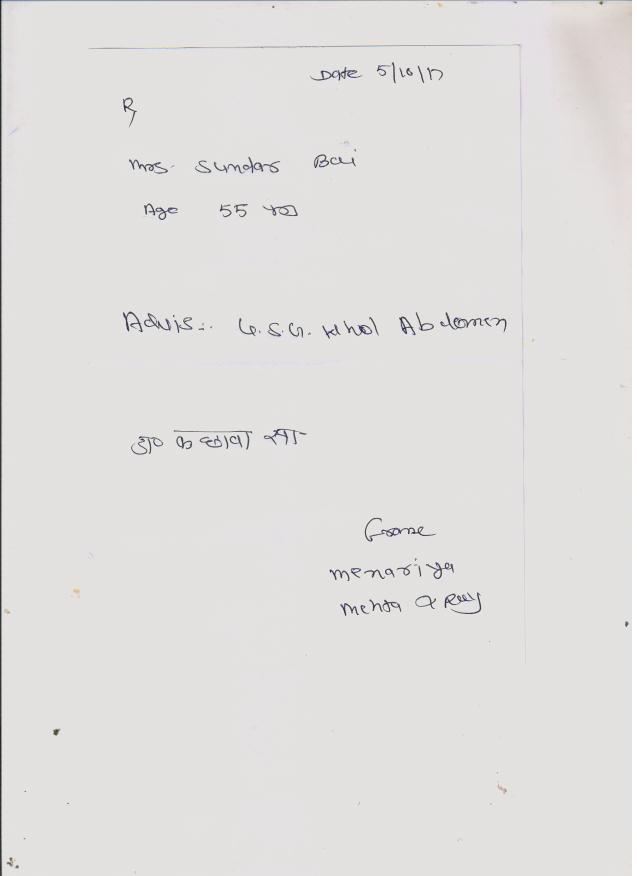 Date 5/10/17
Rx
Mrs. Sundar Bai
Age 55
Advis:. U.S.G. Whol Abdomen
डा० कछावा सा
From
Menariya
Mehta X Ray